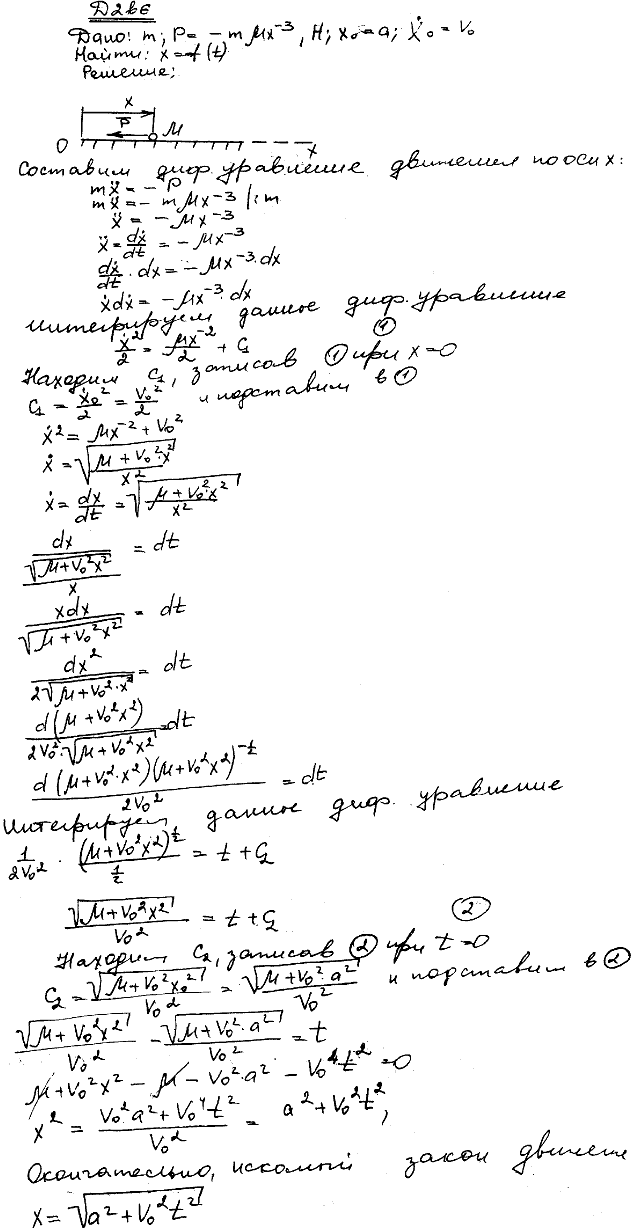 Д2В6
Дано: m; P = - m μx⁻³, Н; x₀ = a; ẋ₀ = V₀
Найти: x = f(t)
Решение:
x
P M
O x
Составим диф. уравнение движения по оси x:
mẍ = - P
mẍ = - m μx⁻³ |: m
ẍ = - μx⁻³
ẍ = dẋ/dt = - μx⁻³
dẋ/dt · dx = - μx⁻³ · dx
ẋdẋ = - μx⁻³ · dx
Интегрируем данное диф. уравнение
ẋ²/2 = μx⁻²/2 + C₁ ①
Находим C₁, записав ① при x = 0
C₁ = ẋ₀²/2 = V₀²/2 и подставим в ①
ẋ² = μx⁻² + V₀²
ẋ = √((μ + V₀²·x²)/x²)
ẋ = dx/dt = √((μ + V₀²·x²)/x²)
dx/(√(μ + V₀²x²)/x) = dt
xdx/√(μ + V₀²x²) = dt
dx²/(2√(μ + V₀²·x²)) = dt
d(μ + V₀²x²)/(2V₀²·√(μ + V₀²x²)) = dt
d(μ + V₀²·x²)(μ + V₀²x²)^(-1/2)/(2V₀²) = dt
Интегрируем данное диф. уравнение
1/(2V₀²) · (μ + V₀²x²)^(1/2)/(1/2) = t + C₂
√(μ + V₀²x²)/V₀² = t + C₂ ②
Находим C₂, записав ② при t = 0
C₂ = √(μ + V₀²x₀²)/V₀² = √(μ + V₀²·a²)/V₀² и подставим в ②
√(μ + V₀²x²)/V₀² - √(μ + V₀²·a²)/V₀² = t
μ + V₀²x² - μ - V₀²·a² - V₀⁴t² = 0
x² = (V₀²a² + V₀⁴t²)/V₀² = a² + V₀²t²,
Окончательно, искомый закон движения
x = √(a² + V₀²t²)